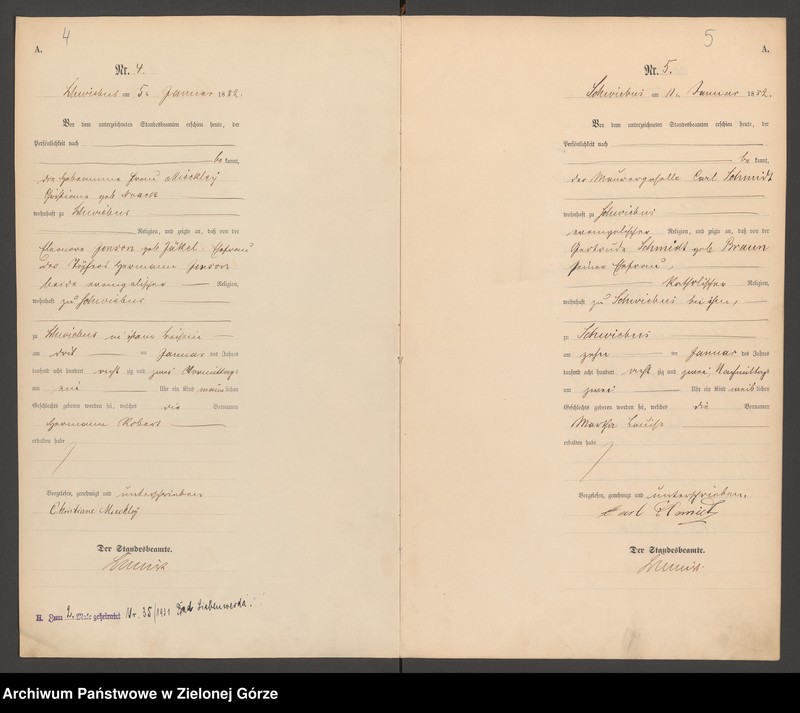 4
A.
Nr. 4.
Schwiebus am 5. Januar 1882.
Vor dem unterzeichneten Standesbeamten erschien heute, der
Persönlichkeit nach
be kannt,
die Hebamme Frau Mückley
Christiane geb
wohnhaft zu Schwiebus
Religion, und zeigte an, daß von der
Eleonore Jenson geb. Jäkel, Ehefrau
des Töpfers Hermann Jenson
beide evangelischer Religion,
wohnhaft zu Schwiebus
zu Schwiebus in ihrem Beisein
am drit en Januar des Jahres
tausend acht hundert acht zig und zwei Vormittags
um Uhr ein Kind männ lichen
Geschlechts geboren worden sei, welches die Vornamen
Hermann Robert
erhalten habe
Vorgelesen, genehmigt und unterschrieben
Christiane Mückley
Der Standesbeamte.
H. Zum 2. Male geheiratet Nr. 35/1931 Bad Liebenwerda.
5
A.
Nr. 5.
Schwiebus am 11. Januar 1882.
Vor dem unterzeichneten Standesbeamten erschien heute, der
Persönlichkeit nach
be kannt,
der Maurergeselle Carl Schmidt
wohnhaft zu Schwiebus
evangelischer Religion, und zeigte an, daß von der
Gertrude Schmidt geb. Braun
seiner Ehefrau,
katholischer Religion,
wohnhaft zu Schwiebus bei ihm,
zu Schwiebus
am zehn en Januar des Jahres
tausend acht hundert acht zig und zwei, Nachmittags
um zwei Uhr ein Kind weib lichen
Geschlechts geboren worden sei, welches die Vornamen
Martha Louise
erhalten habe
Vorgelesen, genehmigt und unterschrieben,
Carl Schmidt
Der Standesbeamte.
Archiwum Państwowe w Zielonej Górze